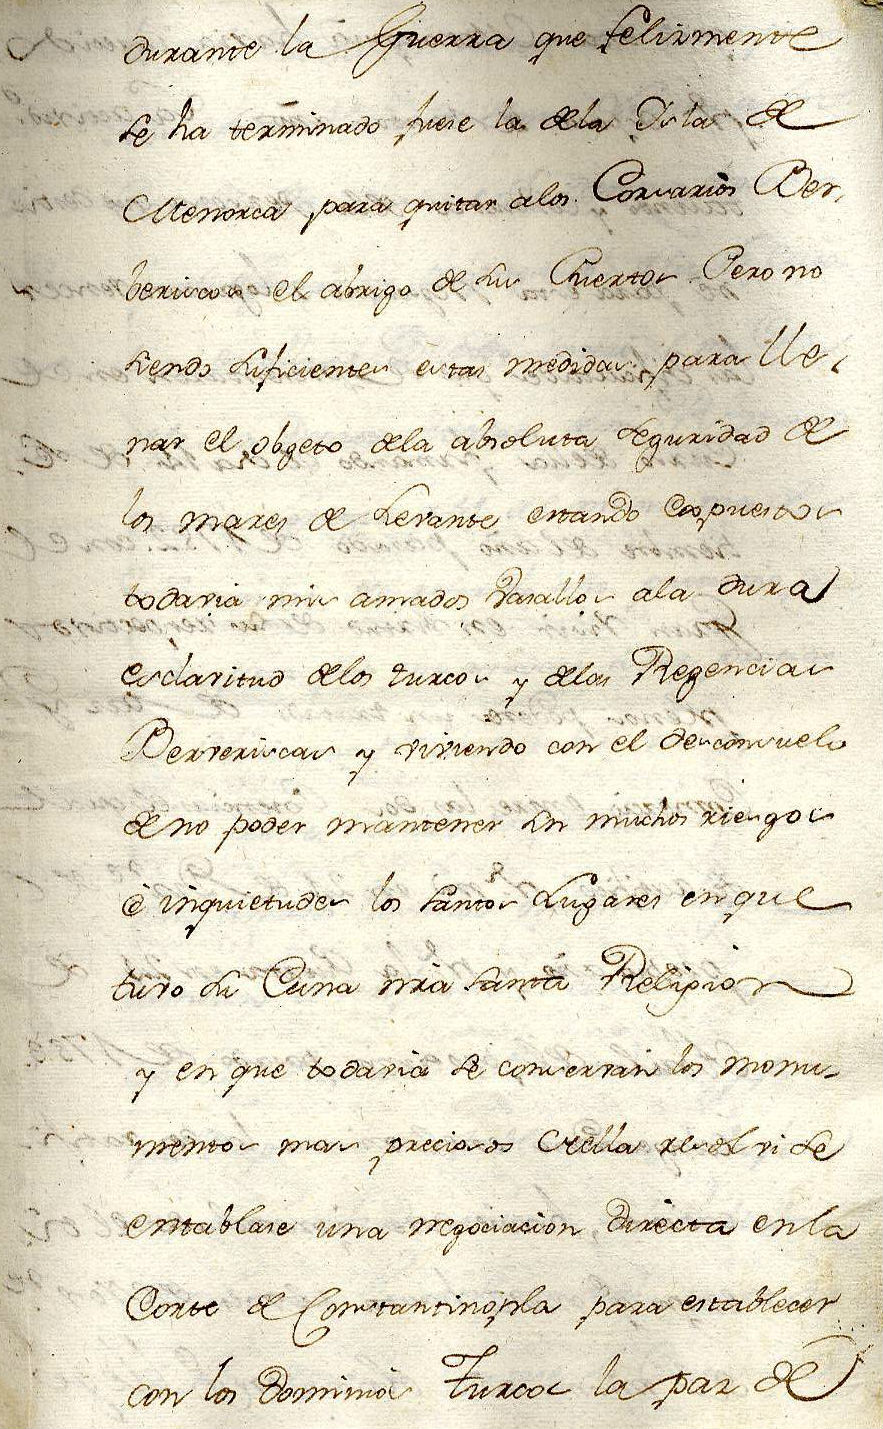 durante la Guerra que felizmente
se ha terminado fuese la dela Isla de
Menorca para quitar alos Corsarios Ber-
beriscos el abrigo de sus Puertos Pero no
siendo suficientes estas medidas para lle-
nar el obgeto dela absoluta seguridad de
los mares de Levante estando expuestos
todavia mis amados Vasallos ala dura
esclavitud delos turcos y delas Regencias
Berveriscas y viviendo con el desconsuelo
de no poder mantener sin muchos riesgos
è inquietudes los santos Lugares en que
tuvo su Cuna nra santa Religion
y en que todavia se conservan los monu-
mentos mas preciosos de ella resolvi se
entablase una negociacion directa en la
Corte de Constantinopla para establecer
con los dominios Turcos la paz de